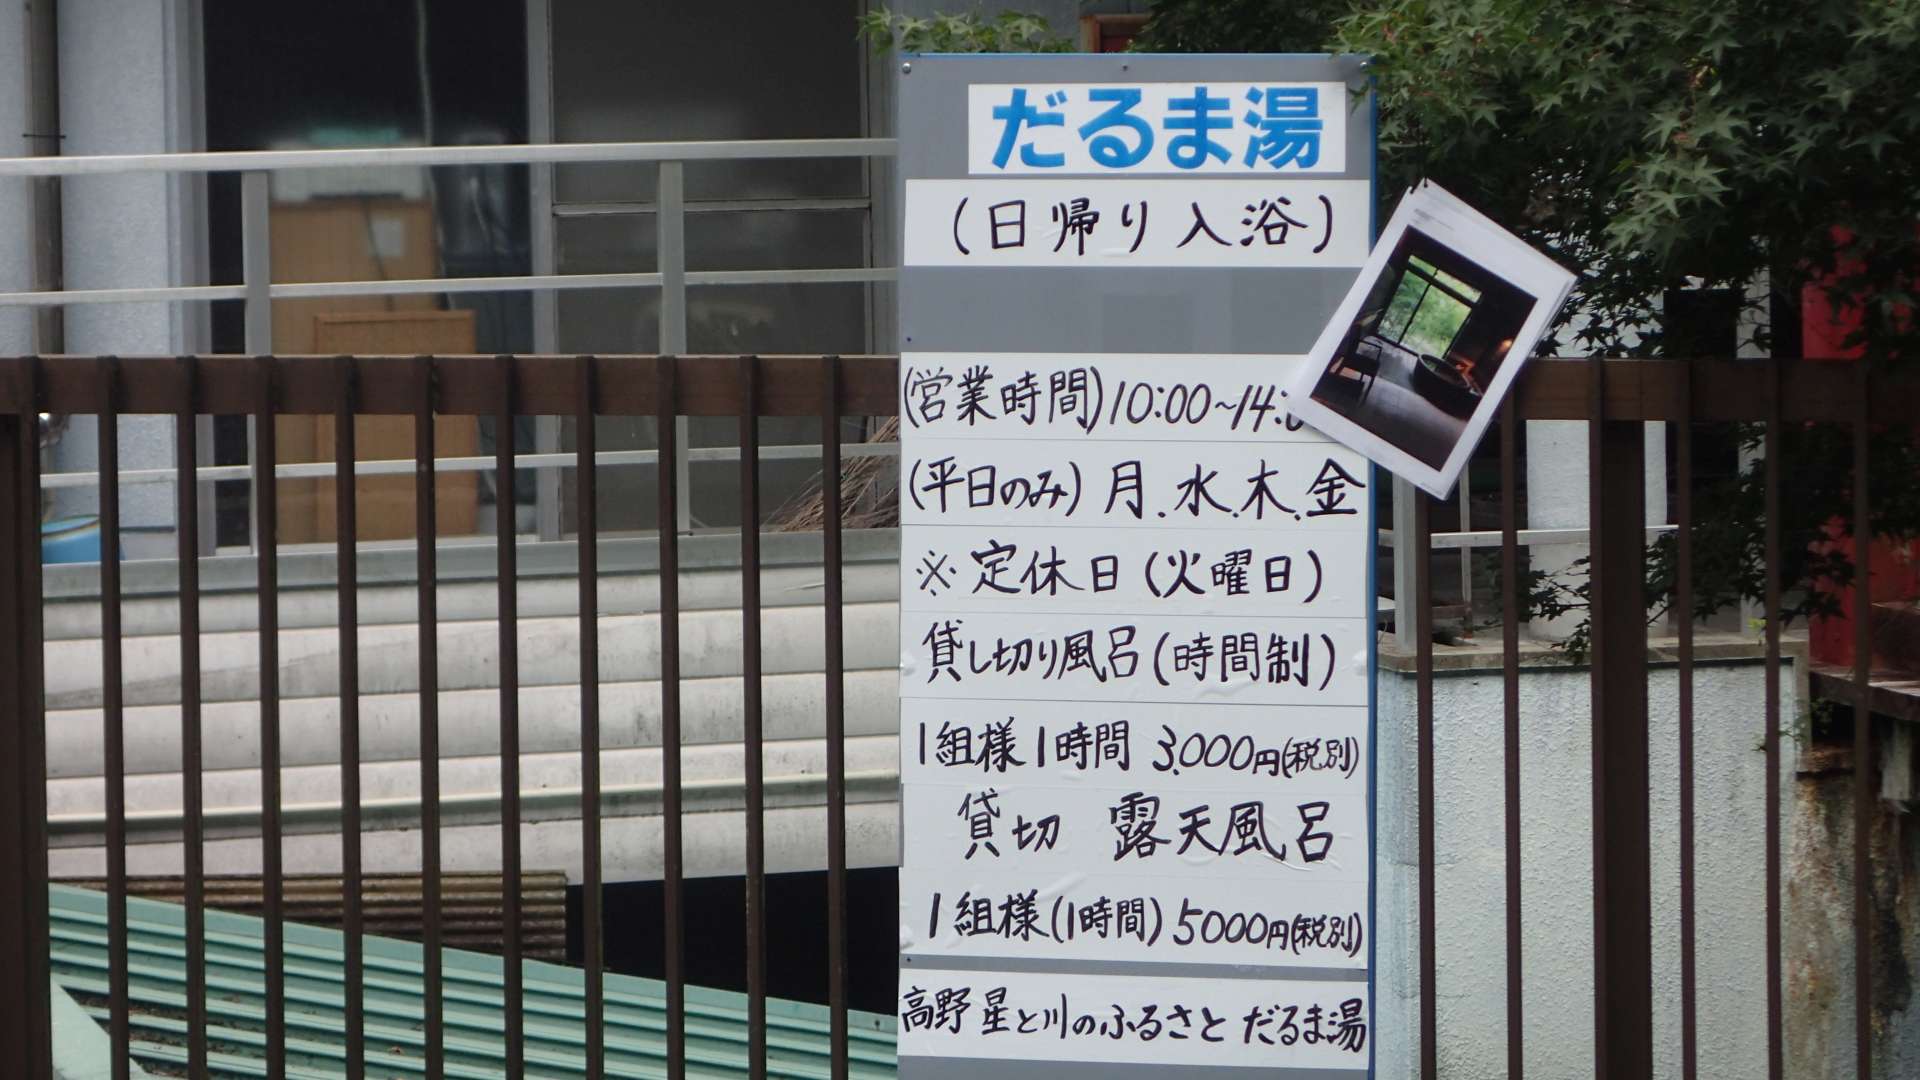 だるま湯
(日帰り入浴)
(営業時間)10:00~14:
(平日のみ)月.水.木.金
※定休日(火曜日)
貸し切り風呂(時間制)
1組様1時間 3.000円(税別)
貸切 露天風呂
1組様(1時間)5000円(税別)
高野 星と川のふるさと だるま湯